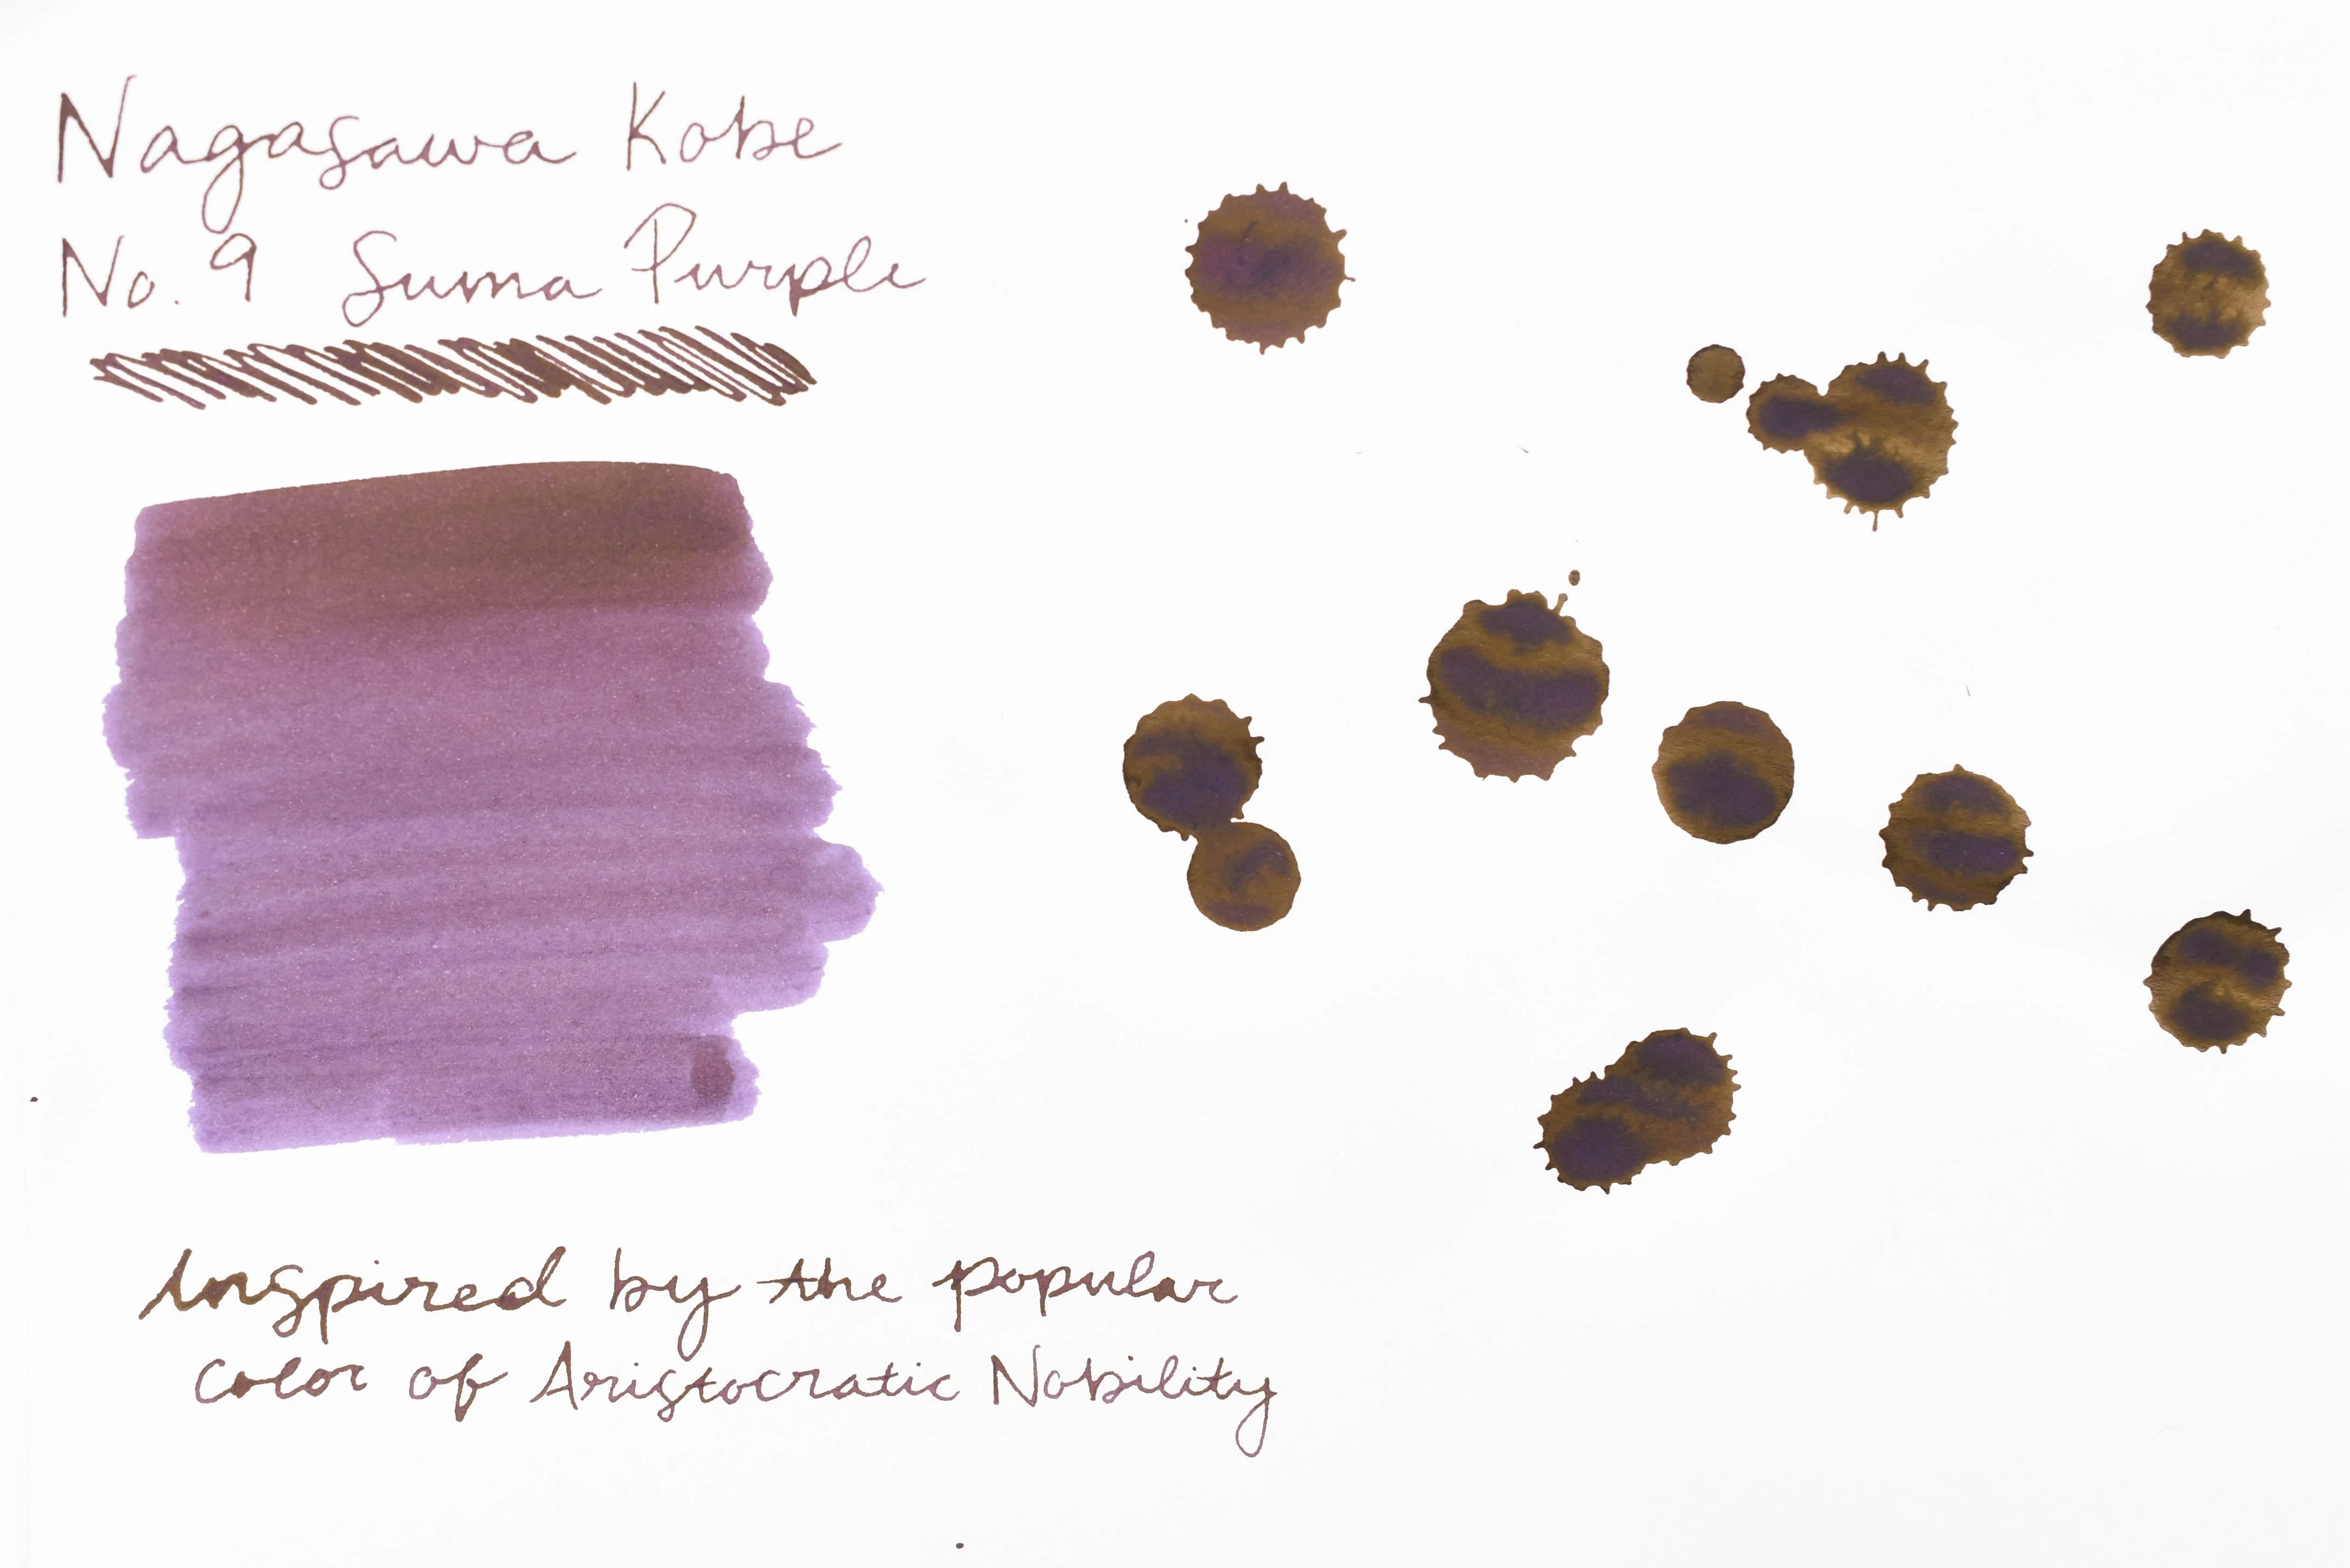 Nagasawa Kobe
No. 9 Suma Purple
Inspired by the popular
color of Aristocratic Nobility